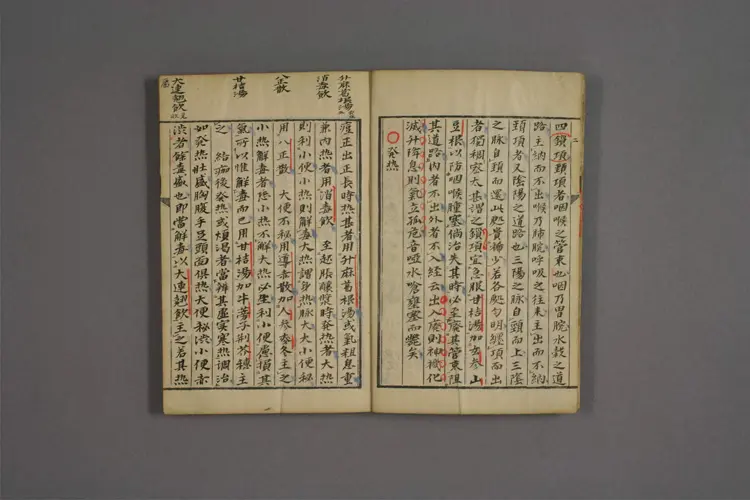 四鎖項頸項者咽喉之管束也咽乃胃脘水穀之道
路主納而不出喉乃肺脘呼吸之往来主出而不納
頸項者又陰陽之道路也三陽之脉自頭而上三陰
之脉自頭而還此処貴稀少若各処勻明纏項而出
者獨稠密大甚謂之鎖項宜急服甘桔湯加玄参山
豆根以防咽喉腫塞倘治失其時必至廢其管束阻
其道路内者不出外者不入経云出入廢則神機化
滅升降息則氣立孤危音啞水嗆壅塞而斃矣
○發熱
升麻葛根湯
消毒飲
八正散
甘桔湯
大連翹飲
瘡正出正長時熱甚者用升麻葛根湯或氣粗息重
兼内熱者用消毒飲 至起脹釀漿時發熱者大熱
則利小便小熱則解毒大熱謂身熱脉大大小便秘
用八正散 大便不秘用導赤散加人参麥冬主之
小熱解毒者恐小熱不解大熱必生利小便慮損其
氣所以惟解毒而已用甘桔湯加牛蒡子荊芥穗主
之 結痂後發熱或煩渇者當辨其虛実寒熱調治
如發熱壮盛胸腹手足頭面俱熱大便秘渋小便赤
渋者餘毒盛也即當解毒以大連翹飲主之若其熱